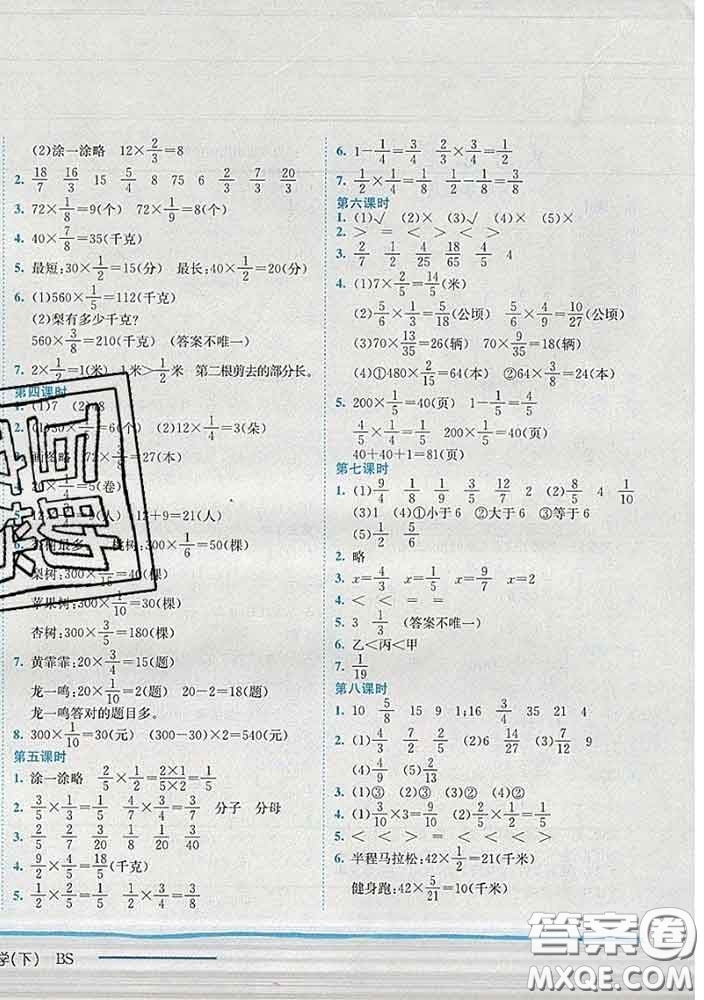 (2)涂一涂略 12×2/3=8
2. 18/7 16/3 15 5/4 8 75 6 2/7 7/2 20/3
3. 72×1/8=9(个) 72×1/8=9(个)
4. 40×7/8=35(千克)
5. 最短:30×1/2=15(分) 最长:40×1/2=20(分)
6. (1)560×1/5=112(千克)
(2)梨有多少千克?
560×3/8=210(千克) (答案不唯一)
7. 2×1/2=1(米) 1米>1/2米 第二根剪去的部分长。
第四课时
(1)7
(2)12×1/4=3(朵)
=27(本)
=5(卷)
12+9=21(人)
300×1/6=50(棵)
梨树:300×1/10=30(棵)
苹果树:300×1/10=30(棵)
杏树:300×3/5=180(棵)
7. 黄霏霏:20×3/4=15(题)
龙一鸣:20×1/10=2(题) 20-2=18(题)
龙一鸣答对的题目多。
8. 300×1/10=30(元) (300-30)×2=540(元)
第五课时
1. 涂一涂略 2/5×1/2=2×1/5×2=1/5
2. 3/5×1/3=1/5 4/5×3/4=3/5 分子 分母
3. 2/5 7/20 3/4 1/3 1/20 3/40
4. 9/2×4/5=18/5(千克)
5. 1/2×2/5=1/5 1/2×3/4=3/8
6. 1-1/4=3/4 3/4×1/3=1/4
7. 1/2×1/4=1/8 1/2-1/8=3/8
第六课时
1. (1)√ (2)× (3)√ (4)√ (5)×
2. > = < < > >
3. 2/7 1/4 25/4 18/65 4/5 4
4. (1)7×2/5=14/5(米)
(2)5/6×1/3=5/18(公顷) 5/6×4/9=10/27(公顷)
(3)70×13/35=26(辆) 70×1/2=35(辆)
(4)①480×2/15=64(本) ②64×3/8=24(本)
5. 200×1/5=40(页) 1-1/5=4/5
4/5×1/4=1/5 200×1/5=40(页)
40+40+1=81(页)
第七课时
1. (1)9/4 1/8 1/5 1/9 7/2 (2)8/5 4 1/10
(3)1 (4)①小于6 ②大于6 ③等于6
(5)1/2 5/6
2. 略
3. x=4/3 x=1/5 x=9/7 x=2
4. < < = =
5. 3 1/3 (答案不唯一)
6. 乙<丙<甲
7. 1/19
第八课时
1. 10 5/8 15 9 1;16 3/4 35 21 4
2. (1)4/3 7/2 2/5 (2)6 14/27 (3)7/12
(4)4/9 (5)2/3
3. (1)③ (2)③ (3)④ (4)②
4. (1)3/10×3=9/10 (2)4/9×1/2=2/9
5. < < = < < >
6. 半程马拉松:42×1/2=21(千米)
健身跑:42×5/21=10(千米)
学(下) BS
答案卷
MXQE.COM